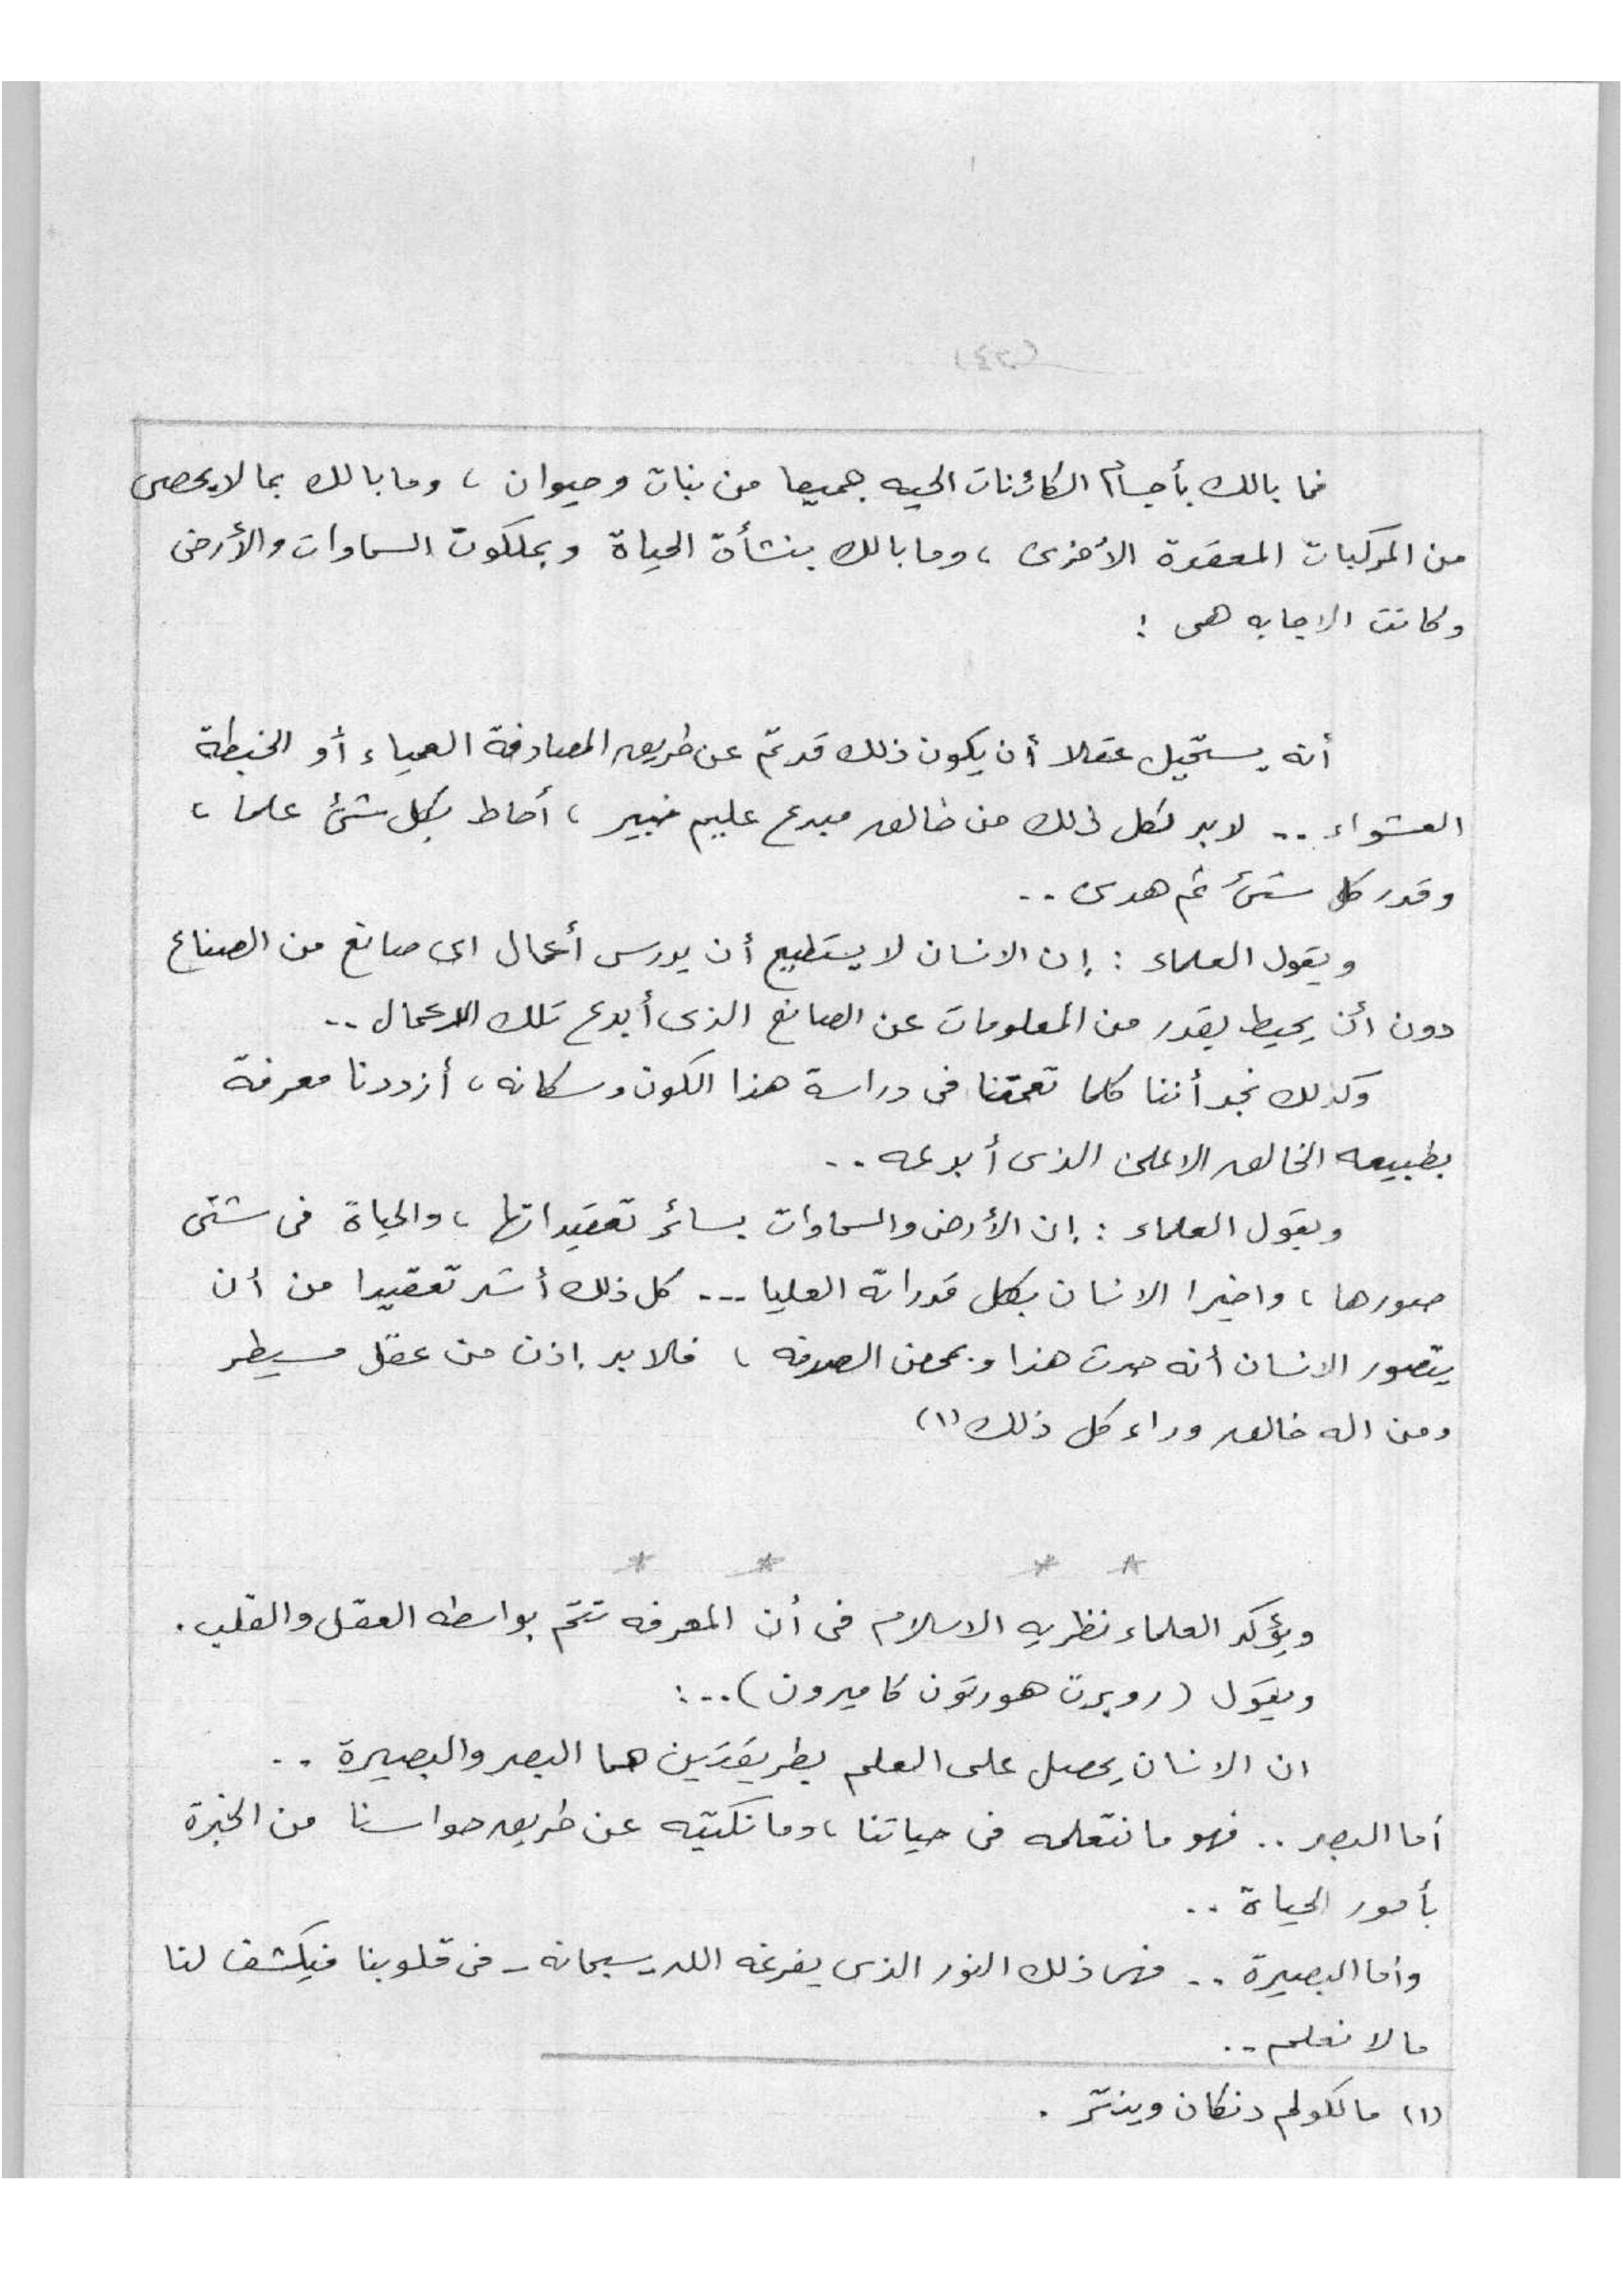 (٣٤)
فما بالك بأجسام الكائنات الحيه جميعا من نبات وحيوان ، وما بالك بما لا يحصى
من المركبات المعقدة الأخرى ، وما بالك بنشأة الحياة وبملكوت السماوات والأرض
وكانت الاجابه هى :
أنه يستحيل عقلا أن يكون ذلك قد تم عن طريق المصادفة العمياء أو الخبطة
العشواء .. لابد لكل ذلك من خالق مبدع عليم خبير ، أحاط بكل شئ علما ،
وقدر كل شئ ثم هدى ..
ويقول العلماء : إن الانسان لا يستطيع أن يدرس أعمال اى صانع من الصناع
دون أن يحيط بقدر من المعلومات عن الصانع الذى أبدع تلك الاعمال ..
وكذلك نجد أننا كلما تعمقنا فى دراسة هذا الكون وسكانه ، أزددنا معرفة
بطبيعه الخالق الاعلى الذى أبدعه ..
ويقول العلماء : إن الأرض والسماوات بسائر تعقيداتها ، والحياة فى شتى
صورها ، واخيرا الانسان بكل قدراته العليا ... كل ذلك أشد تعقيدا من أن
يتصور الانسان أنه حدث هذا وبمحض الصدفه ، فلابد إذن من عقل مسيطر
ومن اله خالق وراء كل ذلك (١)
* * * *
ويؤكد العلماء نظريه الاسلام فى أن المعرفه تتم بواسطه العقل والقلب .
ويقول (روبرت هورتون كاميرون) ..:
ان الانسان يحصل على العلم بطريقتين هما البصر والبصيرة ..
أما البصر .. فهو ما نتعلمه فى حياتنا ، وما نكتبه عن طريق حواسنا من الخبرة
بأمور الحياة ..
وأما البصيرة .. فهى ذلك النور الذى يفرغه الله - سبحانه - فى قلوبنا فيكشف لنا
ما لا نعلم ..
(١) مالكولم دنكان وينتر .